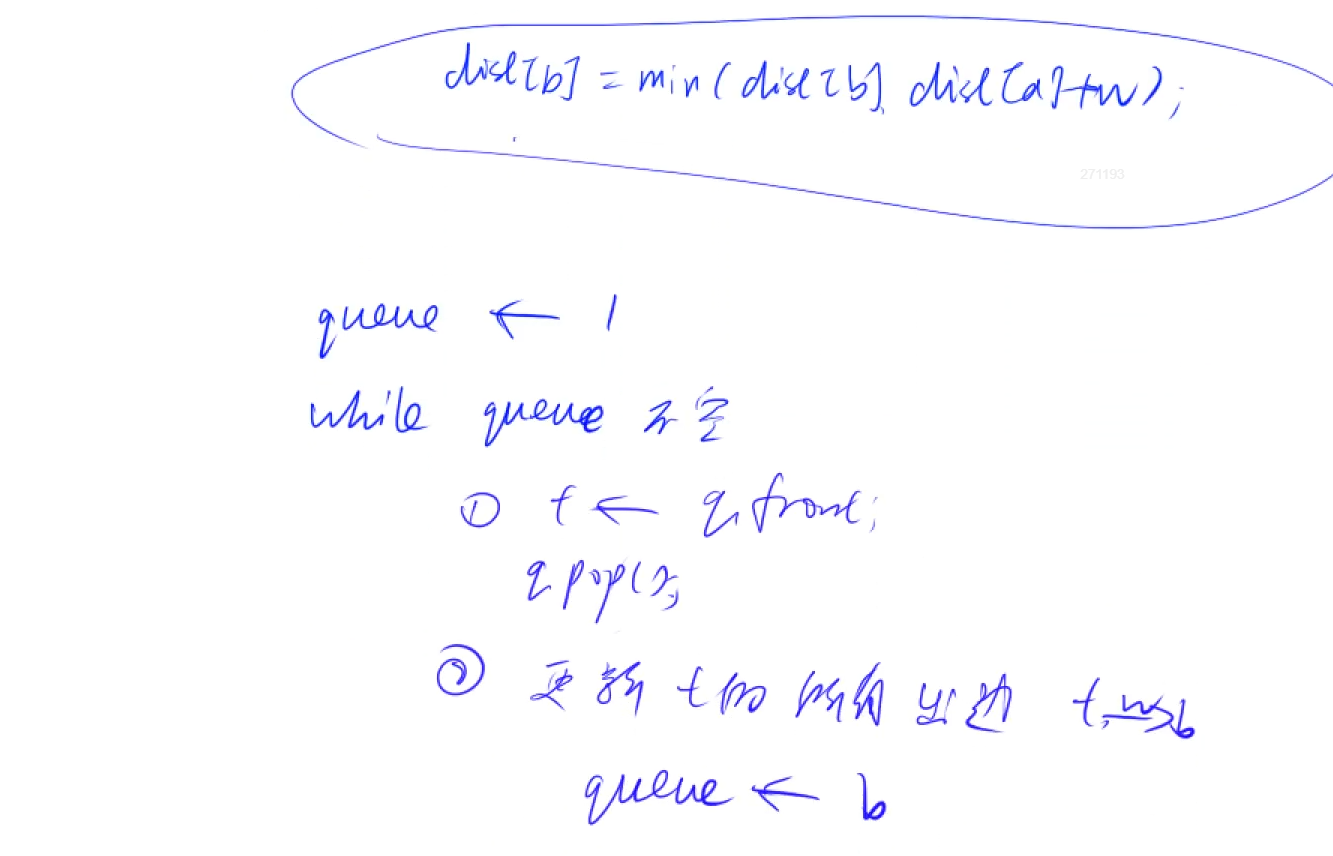 dist[b] = min(dist[b], dist[a]+w);
271193
queue ← 1
while queue 不空
① t ← q.front;
q.pop();
② 更新 t的 所有 出边 t -w-> b
queue ← b